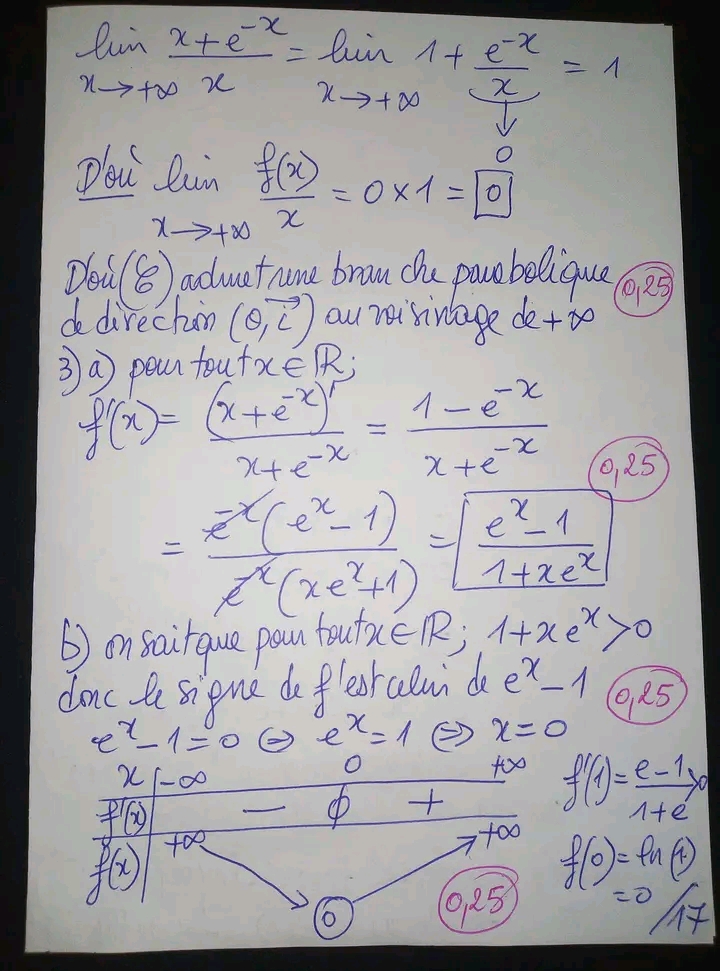 lim x+e^-x / x = lim 1 + e^-x / x = 1
x→+∞ x→+∞ ↓ 0
D'où lim f(x)/x = 0 × 1 = 0
x→+∞
D'où (C) admet une branche parabolique 0,25
de direction (O, i⃗) au voisinage de +∞
3) a) pour tout x ∈ ℝ;
f'(x) = (x+e^-x)' / x+e^-x = 1-e^-x / x+e^-x 0,25
= e^-x(e^x-1) / e^-x(xe^x+1) = e^x-1 / 1+xe^x
b) on sait que pour tout x ∈ ℝ; 1+xe^x>0
donc le signe de f' est celui de e^x-1 0,25
e^x-1=0 ⇔ e^x=1 ⇔ x=0
x -∞ 0 +∞ f'(1) = e-1 / 1+e >0
f'(x) - 0 +
f(x) +∞ 0 +∞ f(0) = ln(1)
0,25 =0
/17